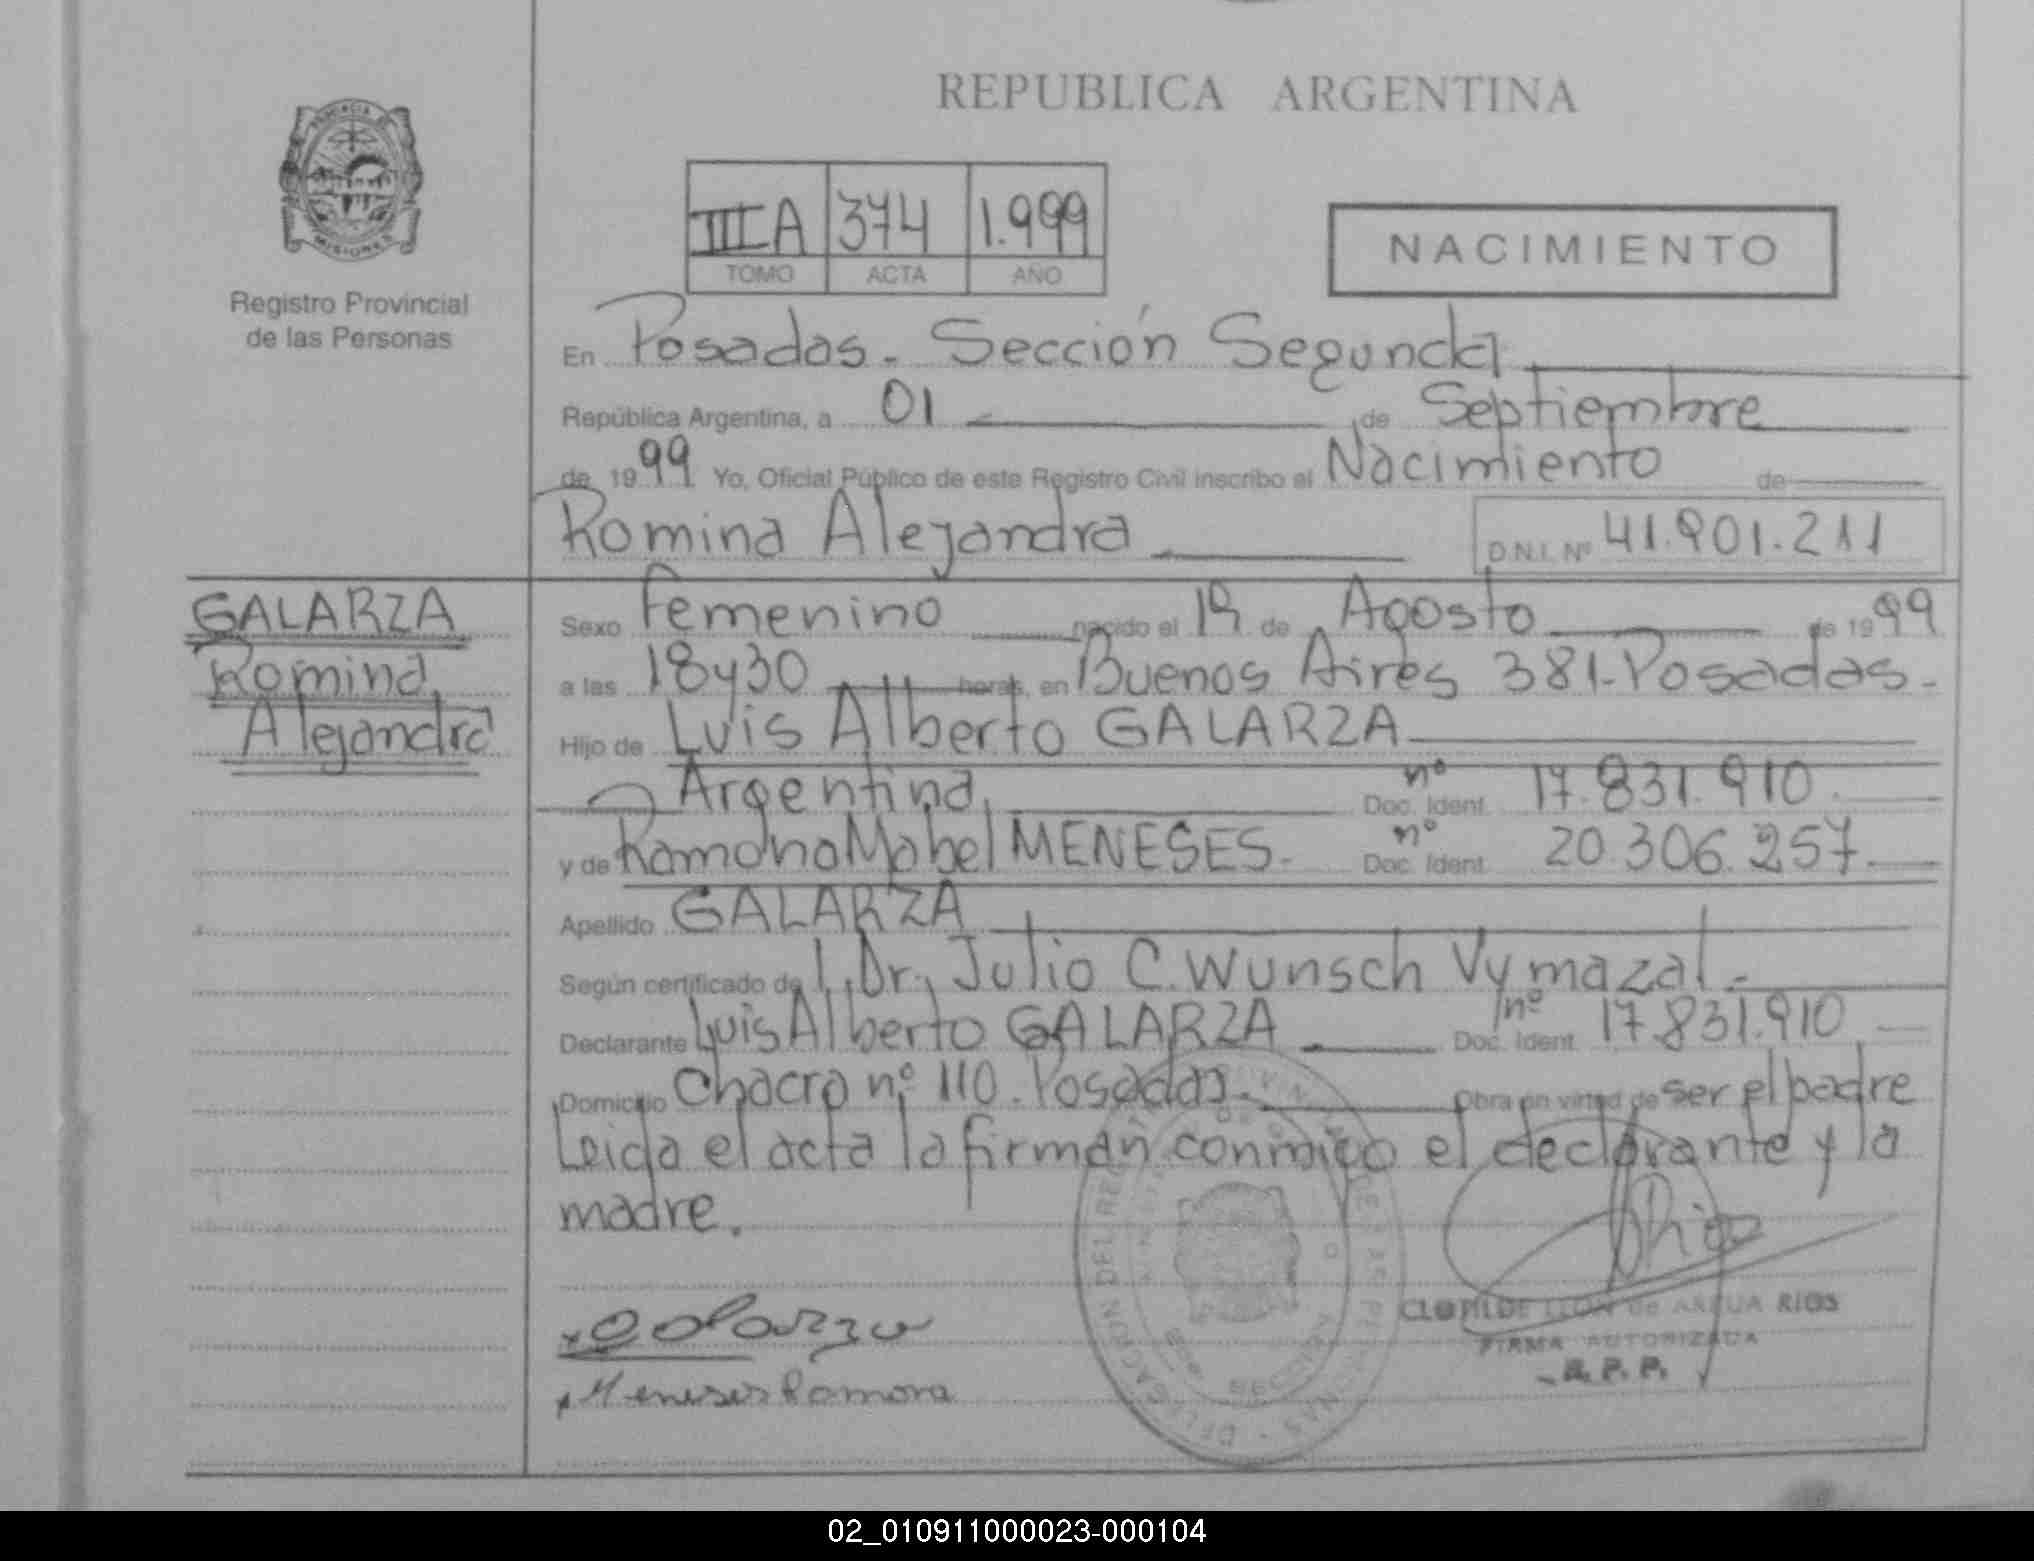 REPUBLICA ARGENTINA
PROVINCIA DE
MISIONES
Registro Provincial
de las Personas
III A 374 1.999
TOMO ACTA AÑO
NACIMIENTO
En Posadas. Sección Segunda
República Argentina, a 01 de Septiembre
de 1999 Yo, Oficial Público de este Registro Civil inscribo el Nacimiento de
Romina Alejandra
D.N.I. Nº 41.901.211
GALARZA
Romina
Alejandra
Sexo Femenino nacido el 19 de Agosto de 1999
a las 18y30 horas, en Buenos Aires 381-Posadas.
Hijo de Luis Alberto GALARZA
Argentina, Doc. Ident. nº 17.831.910
y de Ramona Mabel MENESES. Doc. Ident. nº 20.306.257.
Apellido GALARZA
Según certificado de l. Dr. Julio C. Wunsch Vymazal.
Declarante Luis Alberto GALARZA Doc. Ident. nº 17.831.910
Domicilio Chacra nº 110. Posadas. Obra en virtud de ser el padre
Leida el acta la firman conmigo el declarante y la
madre.
x Galarza
x Meneses Ramona
CLOTILDE LEON de AREUA RIOS
FIRMA AUTORIZADA
R.P.P.
02_010911000023-000104